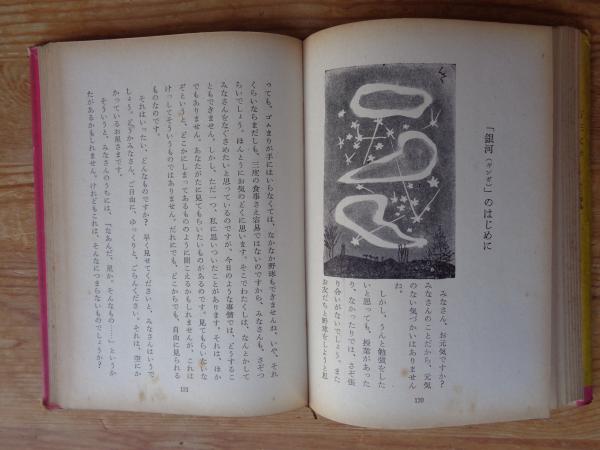 「銀河（ギンガ）」のはじめに
みなさん、お元気ですか？
みなさんのことだから、元気
のない気づかいはありません
ね。
しかし、うんと勉強をした
いと思っても、授業があった
り、なかったりでは、さぞ張
り合いがないでしょう。また
お友だちと野球をしようと思
120
っても、ゴムまりが手にはいらなくては、なかなか野球もできませんね。いや、それ
くらいならまだしも、三度の食事さえ容易ではないのですから、みなさんも、さぞつ
らいでしょう。ほんとうにお気のどくに思います。そこでわたくしは、なんとかして
みなさんをなぐさめたいと思っているのですが、今日のような事情では、どうするこ
ともできません。しかし、ただ一つ、私に思いついたことがあります。それは、ほか
でもありません。あなたがたに見てもらいたいものがあるのです。見てもらいたいな
ぞというと、どこかにしまってあるもののように聞こえるかもしれませんが、これは
けっしてそういうものではありません。だれにでも、どこからでも、自由に見られる
ものなのです。
それはいったい、どんなものですか？　早く見せてくださいと、みなさんはいうで
しょう。どうかみなさん、ご自由に、ゆっくりと、ごらんください。それは、空にか
かっているお星さまです。
そういうと、みなさんのうちには、「なあんだ、星か。そんなもの……」というか
たがあるかもしれません。けれどもこれは、そんなにつまらないものでしょうか？
121